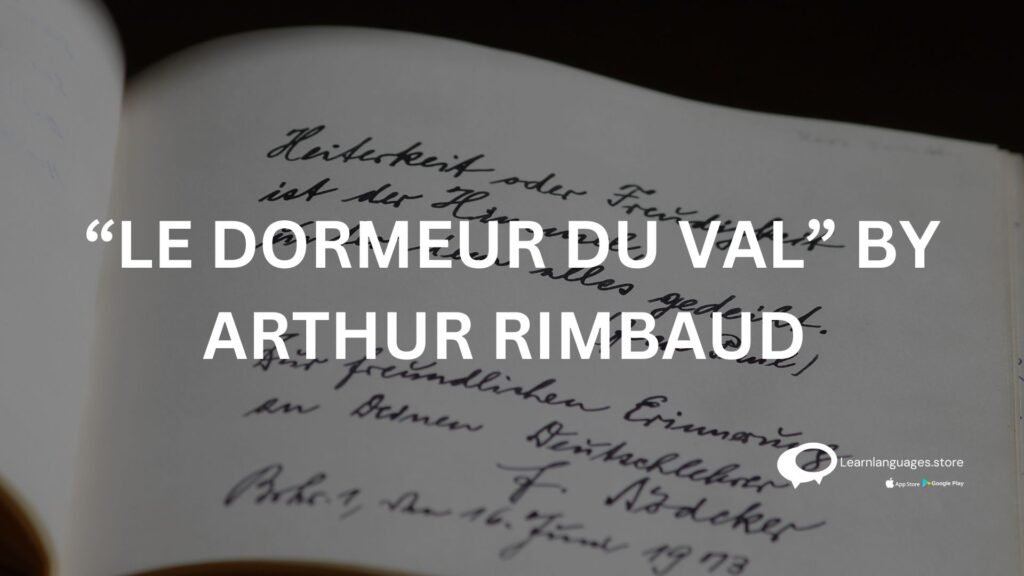 Heiterkeit oder
ist der Himmel
“LE DORMEUR DU VAL” BY
alles gedeiht.
ARTHUR RIMBAUD
Zur freundlichen Erinnerung
an Deinen Deutschlehrer
Learnlanguages.store
App Store Google Play
F.
den 16. Juni 1973